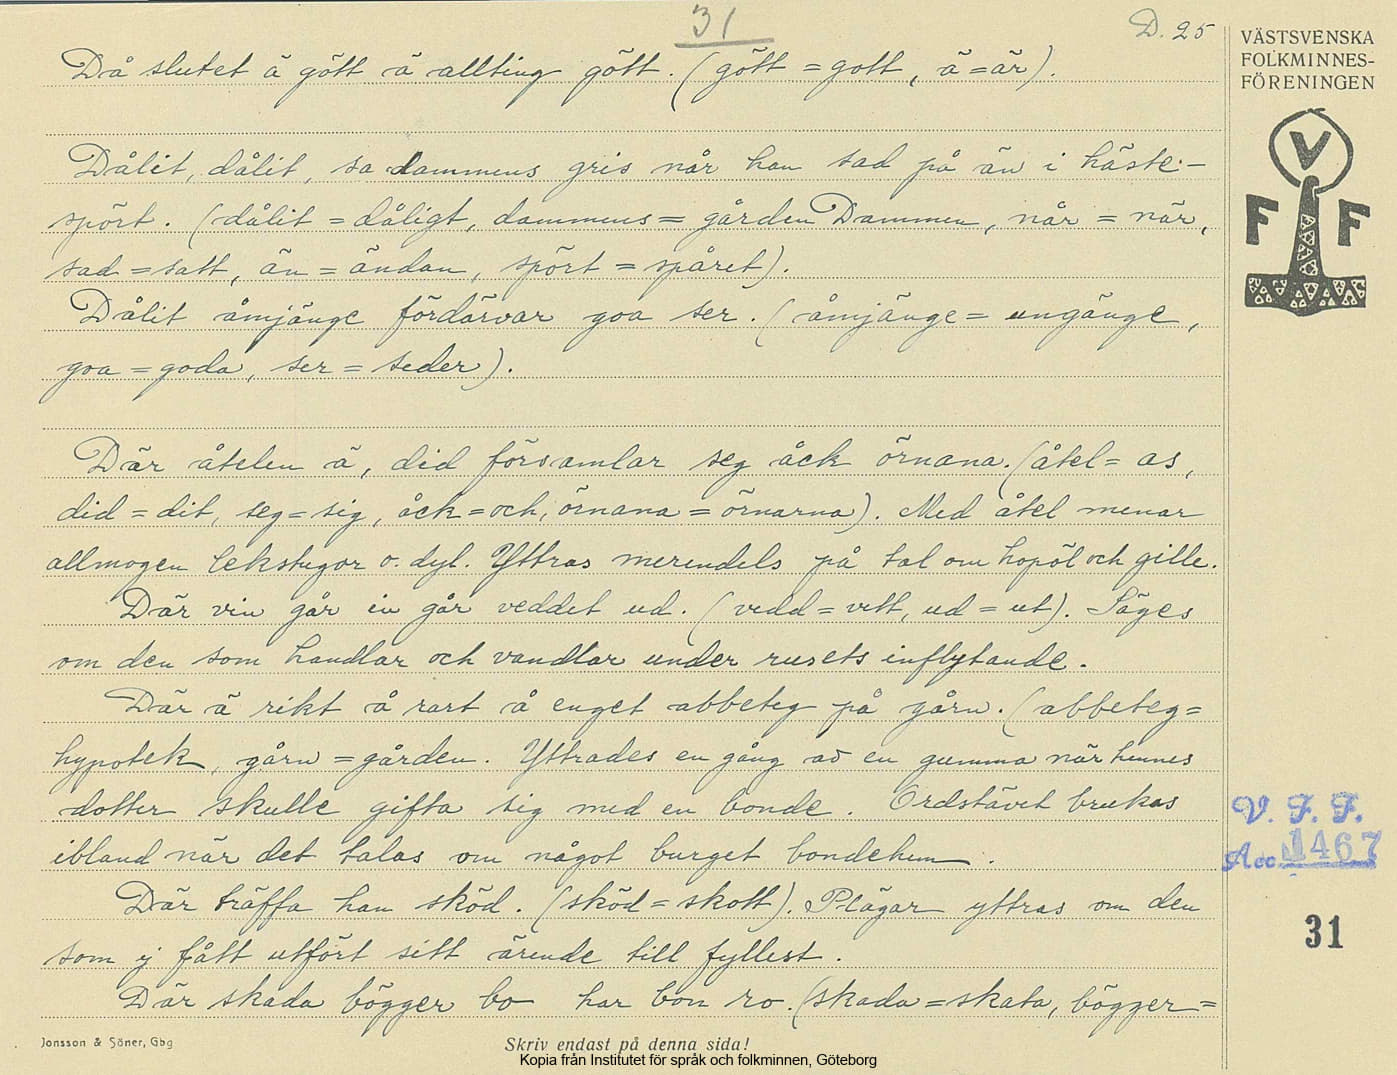 31
D. 25
VÄSTSVENSKA
FOLKMINNES-
FÖRENINGEN
Då slutet ä gött ä allting gött. (gött = gott, ä = är).
V
F F
Dålit, dålit, sa dammens gris når han sad på än i häste-
spört. (dålit = dåligt, dammens = gården Dammen, når = när,
sad = satt, än = ändan, spört = spåret).
Dålit åmjänge fördärvar goa ser. (åmjänge = umgänge,
goa = goda, ser = seder).
Där åtelen ä, did församlar seg åck örnana. (åtel = as,
did = dit, seg = sig, åck = och, örnana = örnarna). Med åtel menar
allmogen lekstugor o. dyl. Yttras merendels på tal om hopöl och gille.
Där vin går in går veddet ud. (vedd = vett, ud = ut). Säges
om den som handlar och vandlar under rusets inflytande.
Där ä rikt å rart å enget abbeteg på gårn. (abbeteg =
hypotek, gårn = gården. Yttrades en gång av en gumma när hennes
dotter skulle gifta sig med en bonde. Ordstävet brukas
ibland när det talas om något burget bondehem.
V. F. F.
Acc 1467
Där träffa han sköd. (sköd = skott). Plägar yttras om den
som ej fått utfört sitt ärende till fyllest.
31
Där skada bögger bo har bon ro. (skada = skata, bögger =
Jonsson & Söner, Gbg
Skriv endast på denna sida!
Kopia från Institutet för språk och folkminnen, Göteborg